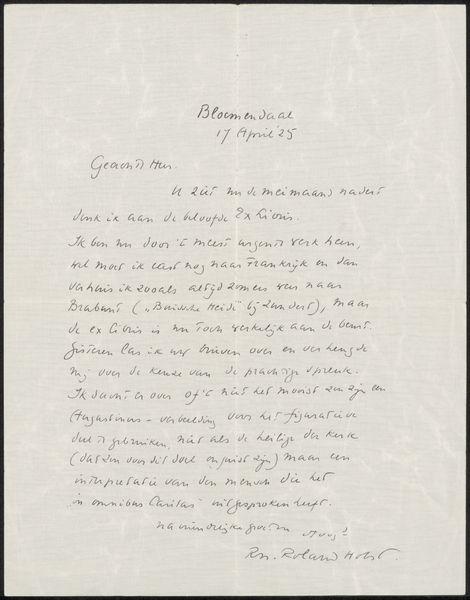 Bloemendaal
17 April '25
Geachte Heer.
U ziet nu de meimaand nadert
denk ik aan de beloofde Ex Libris.
Ik ben nu door 't meest urgente werk heen,
wel moet ik eerst nog naar Frankrijk en dan
verhuis ik zooals altijd zomers wer naar
Brabant („Buissche Heide" bij Zundert), maar
de ex libris is nu toch werkelijk aan de beurt.
Gisteren las ik uw brieven over en verheugde
mij over de keuze van de prachtige spreuk.
Ik dacht er over of 't niet het mooist zou zijn een
Augustinus - verbeelding voor het figuratieve
deel te gebruiken, niet als de heilige der kerk
(dat zou voor dit doel onjuist zijn) maar een
interpretatie van den mensch die het
„in omnibus Caritas" uitgesproken heeft.
na vriendelijke groeten
R.N. Roland Holst.